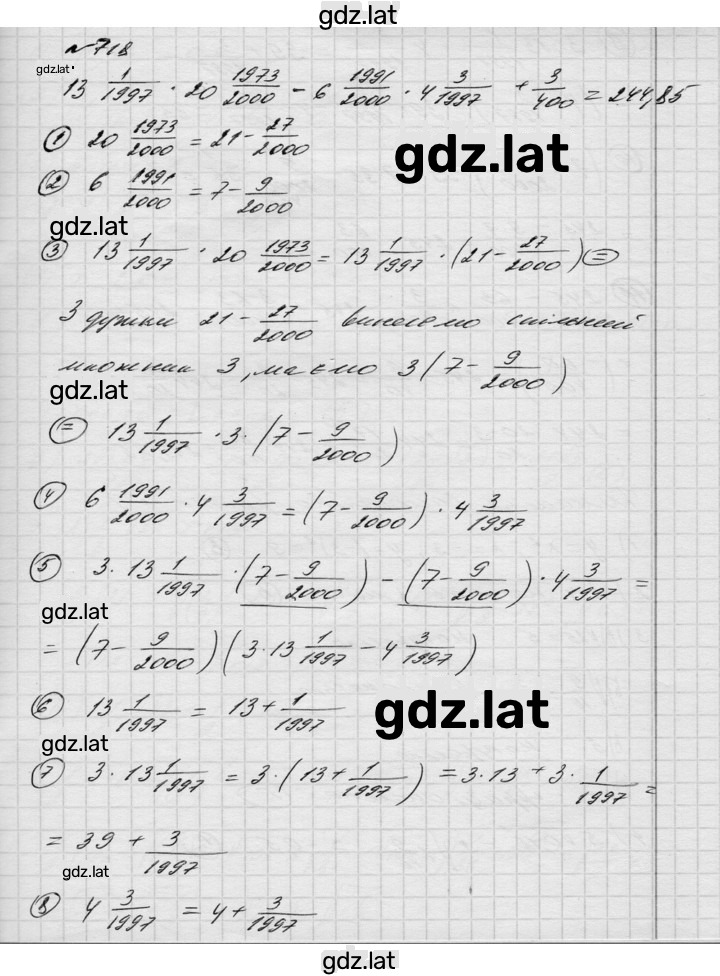 gdz.lat
№718
gdz.lat
13 1/1997 · 20 1973/2000 - 6 1991/2000 · 4 3/1997 + 3/400 = 244,85
① 20 1973/2000 = 21 - 27/2000
gdz.lat
② 6 1991/2000 = 7 - 9/2000
gdz.lat
③ 13 1/1997 · 20 1973/2000 = 13 1/1997 · (21 - 27/2000) =
З дужки 21 - 27/2000 виносемо спільний
множник 3, маємо 3(7 - 9/2000)
gdz.lat
= 13 1/1997 · 3 · (7 - 9/2000)
④ 6 1991/2000 · 4 3/1997 = (7 - 9/2000) · 4 3/1997
⑤ 3 · 13 1/1997 · (7 - 9/2000) - (7 - 9/2000) · 4 3/1997 =
gdz.lat
= (7 - 9/2000)(3 · 13 1/1997 - 4 3/1997)
⑥ 13 1/1997 = 13 + 1/1997
gdz.lat
gdz.lat
⑦ 3 · 13 1/1997 = 3 · (13 + 1/1997) = 3 · 13 + 3 · 1/1997 =
= 39 + 3/1997
gdz.lat
⑧ 4 3/1997 = 4 + 3/1997
gdz.lat